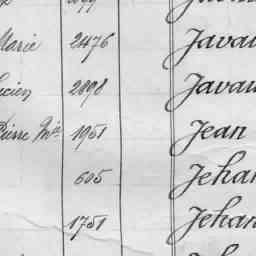 Marie 2476 Javau
Lucien 2898 Javau
Pierre Mie 1951 Jean
605 Jehan
1751 Jehan